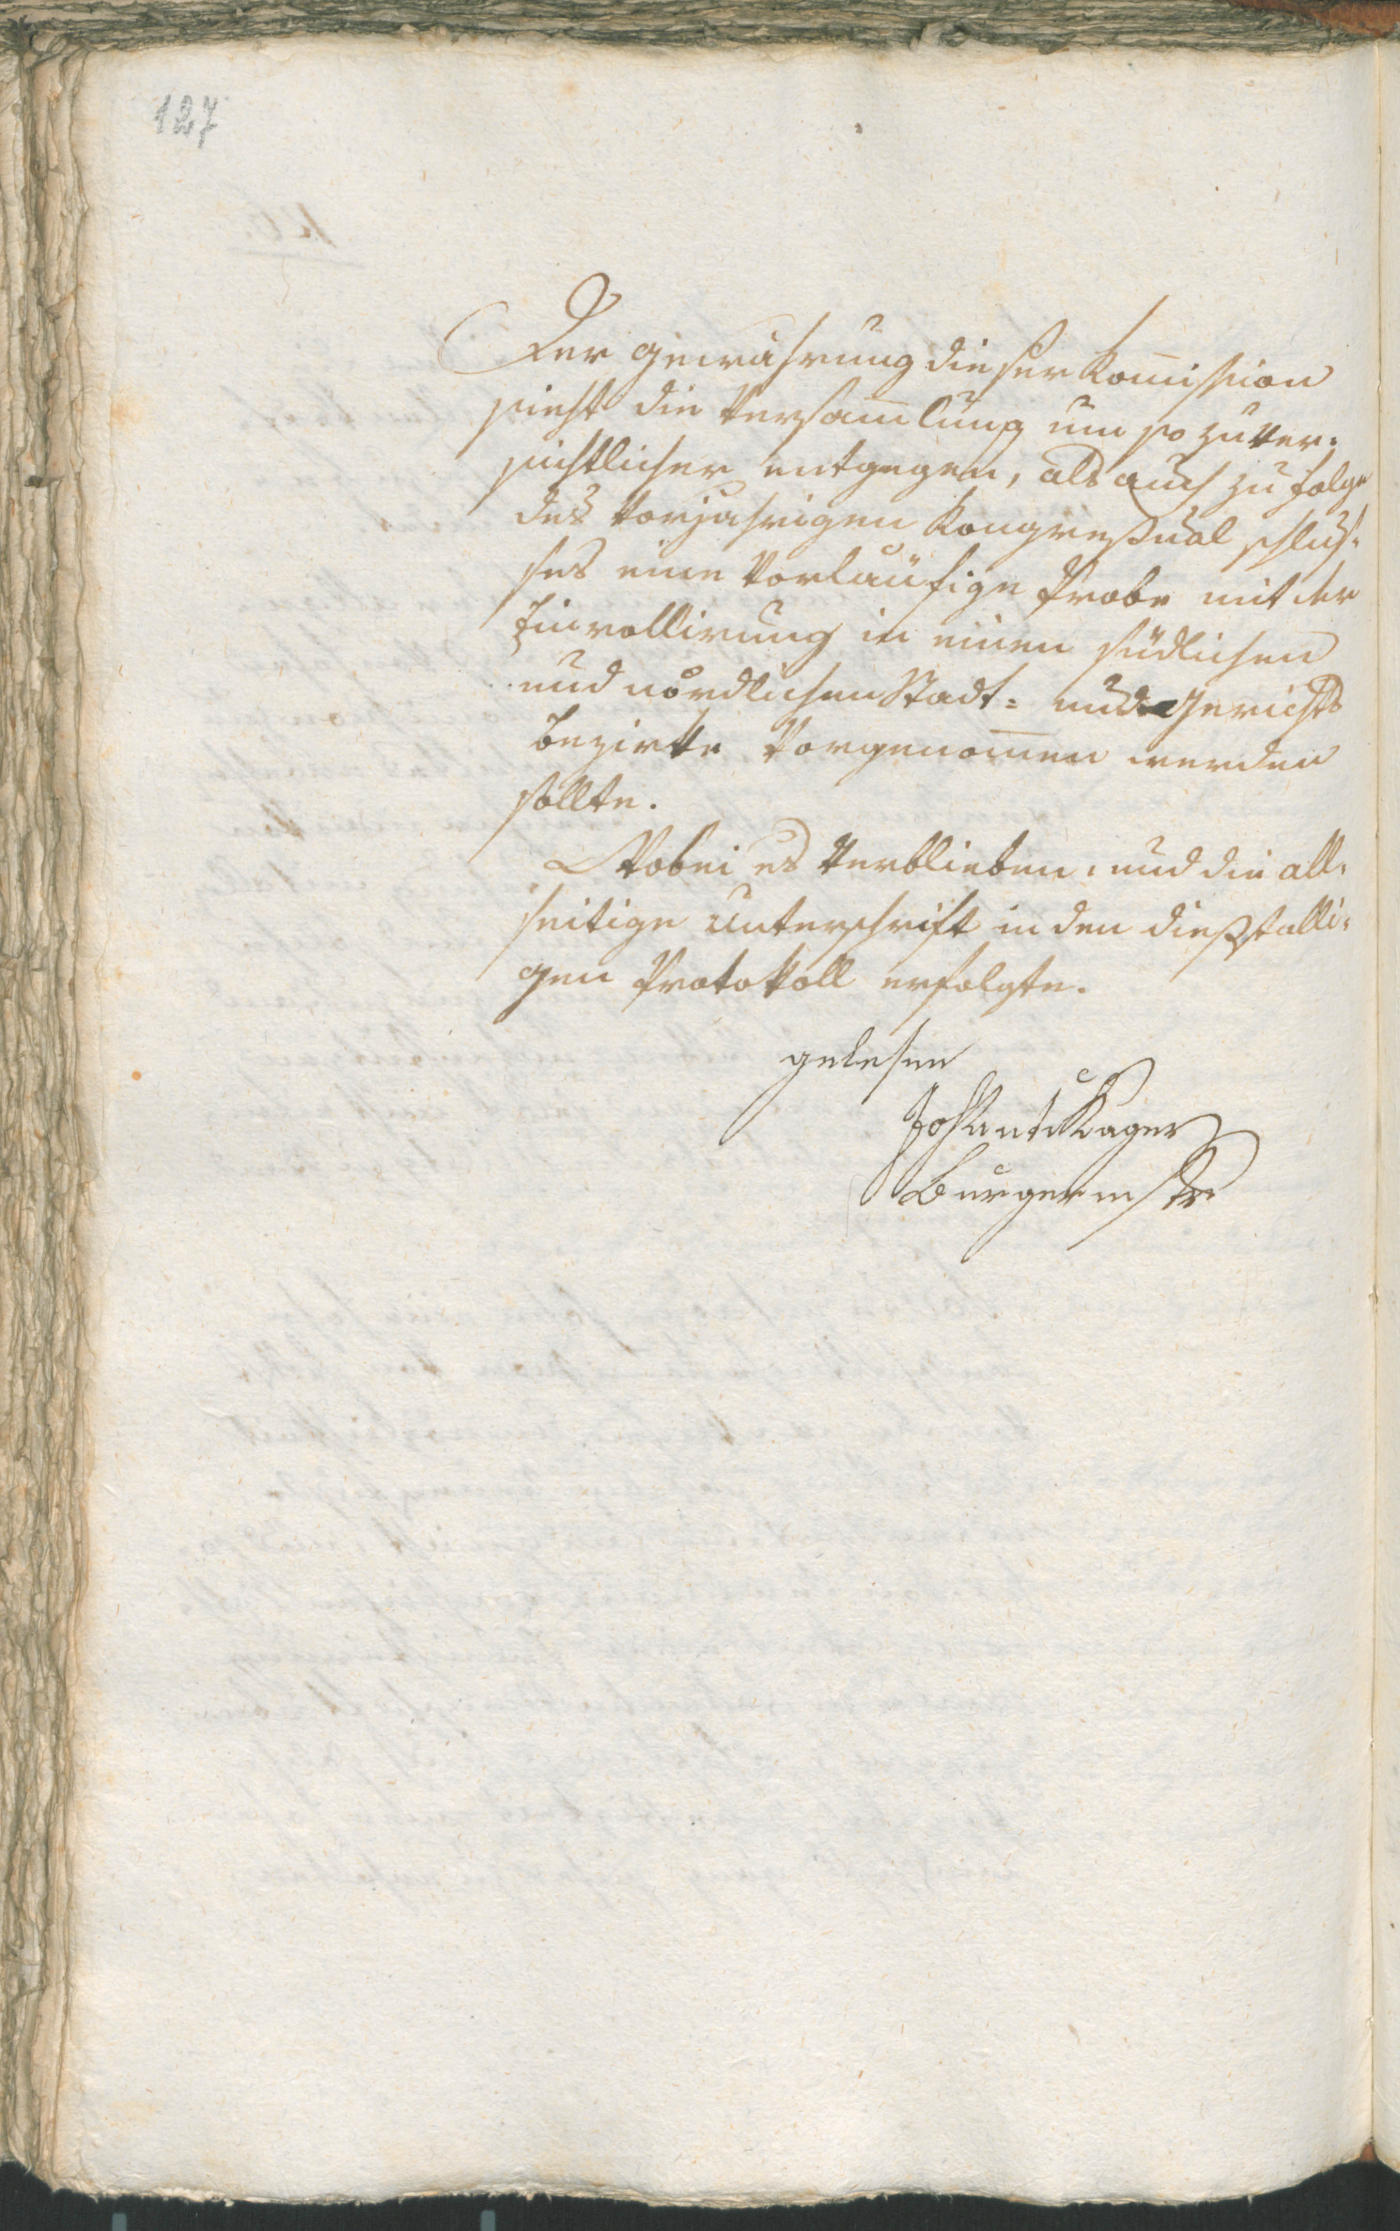 127
Der gewahrung dieser Kom̅ission
sieht die Versam̅lung um so zuver-
sichtlicher entgegen, als auch zu folge
des vorjahrigen Kongreßual schluß-
ses eine vorlaüfige Probe mit der
Einrollirung in einen südlichen
und nördlichen Stadt= und Gerichts
bezirke vorgenom̅en werden
sollte.
Wobei es verblieben, und die all-
seitige Unterschrift in den dießfalli-
gen Protokoll erfolgte.
gelesen
Joh Kager
Burgermstr